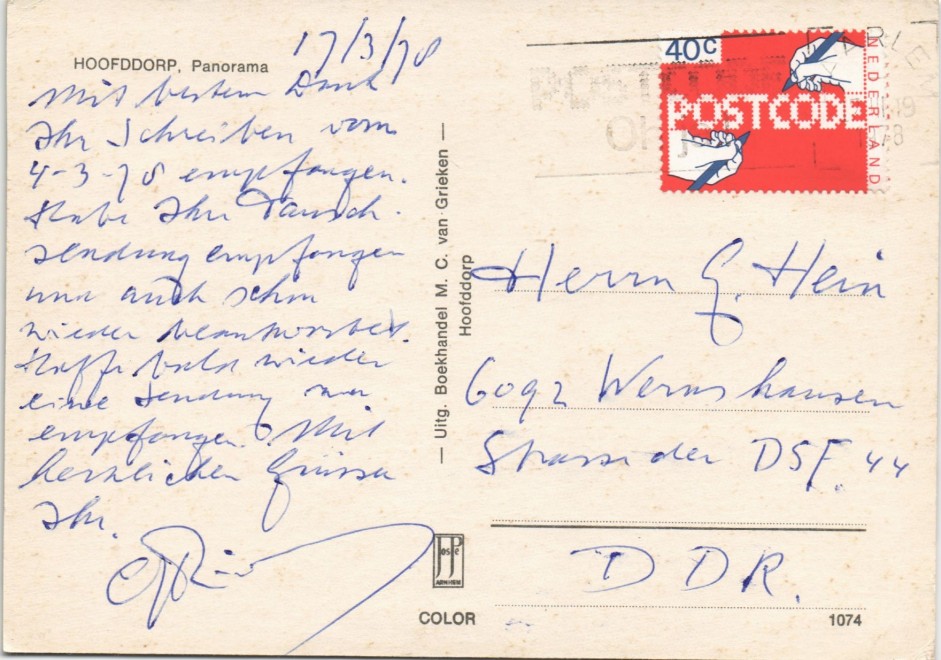 HOOFDDORP, Panorama
17/3/78
Mit bestem Dank
Ihr Schreiben vom
4-3-78 empfangen.
Habe Ihr Tausch-
sendung empfangen
und auch schon
wieder beantwortet.
Hoffe bald wieder
eine Sendung zu
empfangen. Mit
herzlichen Grüssen
Ihr.
— Uitg. Boekhandel M. C. van Grieken —
Hoofddorp
40c
POSTCODE
NEDERLAND
Herrn G. Hein
6092 Wernshausen
Strasse der DSF. 44
DDR.
JosPé
ARNHEM
COLOR
1074